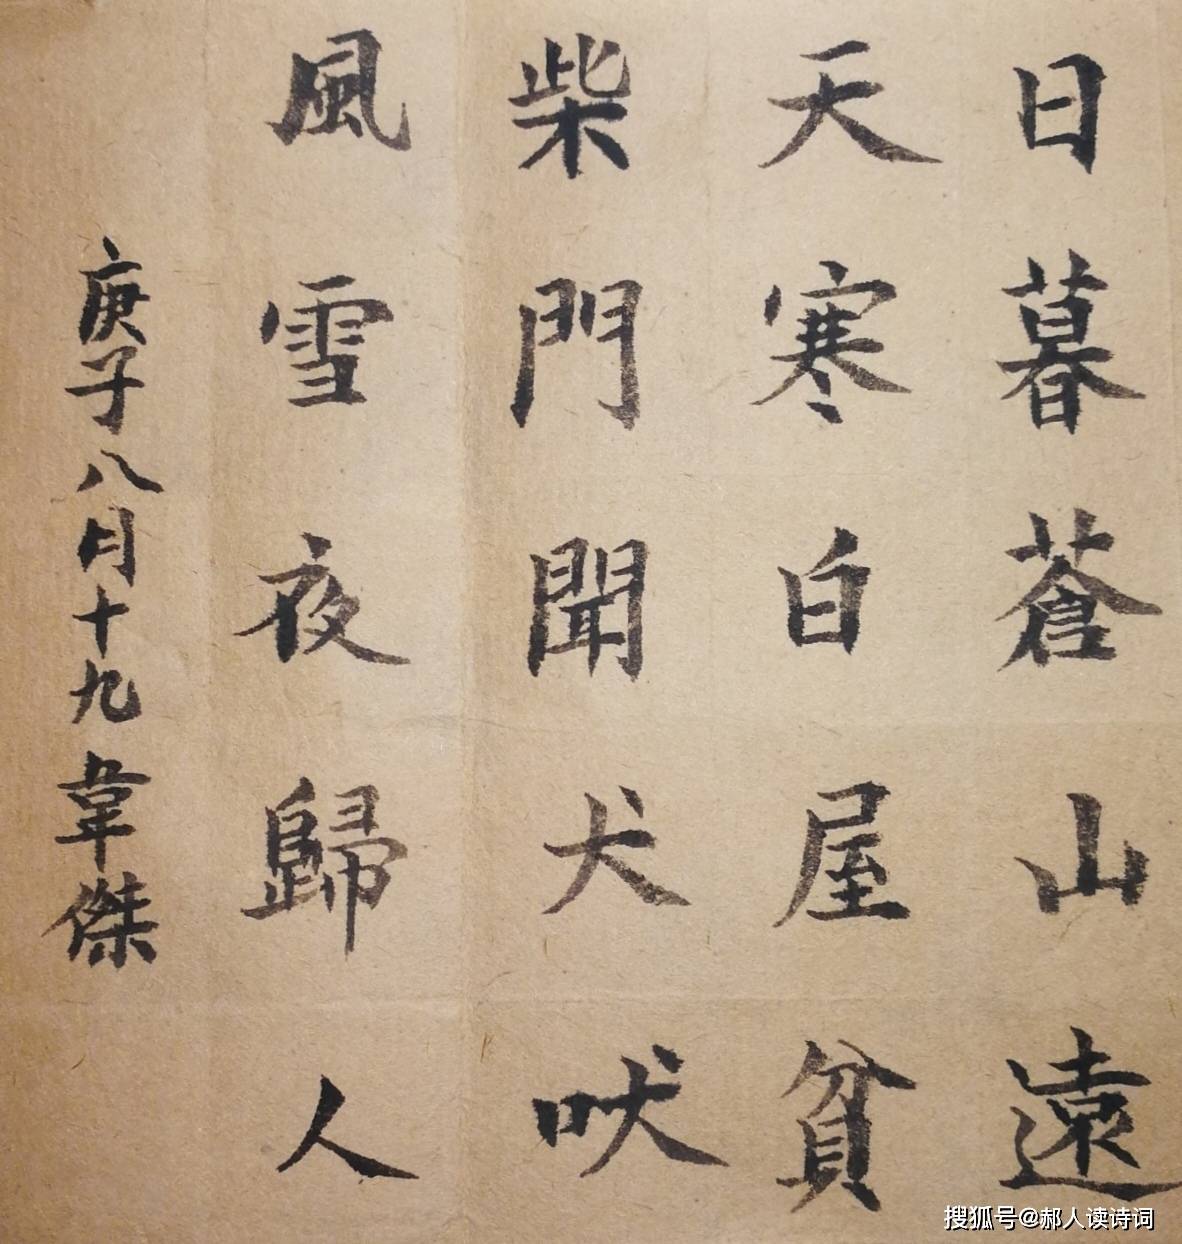 日暮蒼山遠
天寒白屋貧
柴門聞犬吠
風雪夜歸人
庚子八月十九韋傑
搜狐号@郝人读诗词